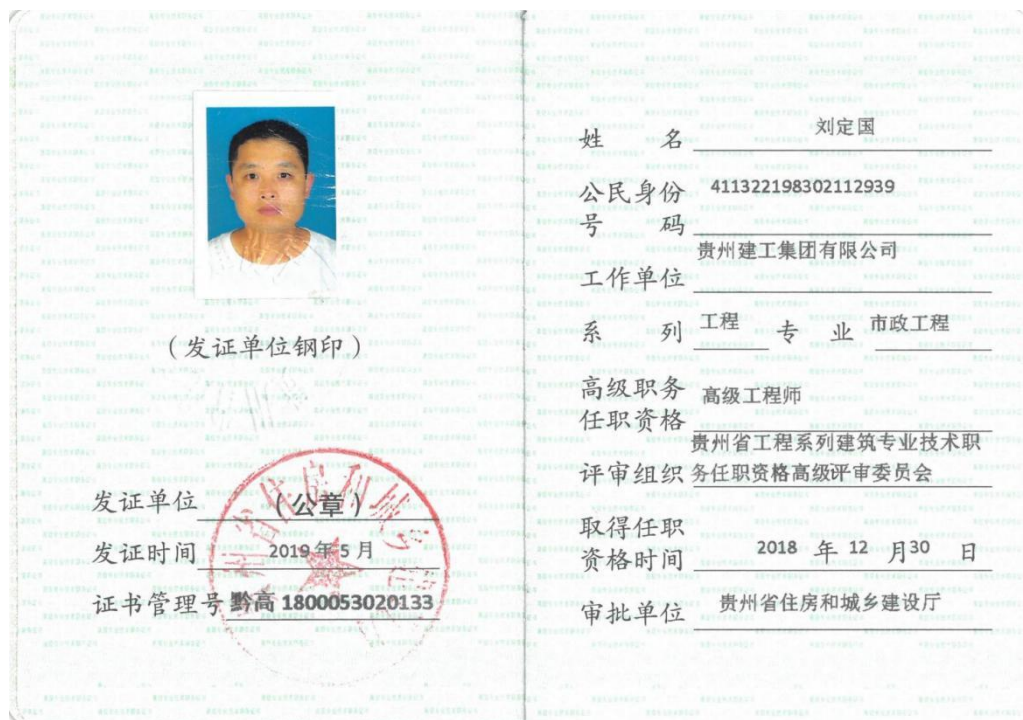 (发证单位钢印)
发证单位 (公章)
发证时间 2019年5月
证书管理号 黔高 1800053020133
姓 名 刘定国
公民身份 411322198302112939
号 码
工作单位 贵州建工集团有限公司
系 列 工程 专 业 市政工程
高级职务
任职资格 高级工程师
贵州省工程系列建筑专业技术职
评审组织 务任职资格高级评审委员会
取得任职
资格时间 2018 年 12 月 30 日
审批单位 贵州省住房和城乡建设厅